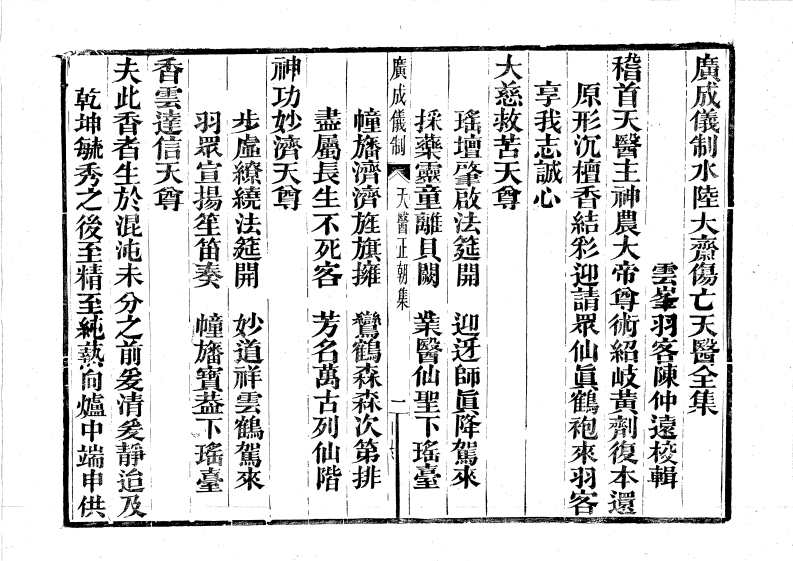 廣成儀制水陸大齋傷亡天醫全集
雲峯羽客陳仲遠校輯
稽首天醫主神農大帝尊術紹岐黃劑復本還
原形沉檀香結彩迎請眾仙眞鶴袍來羽客
享我志誠心
大慈救苦天尊
瑤壇肇啟法筵開　迎迓師眞降駕來
採藥靈童離貝闕　業醫仙聖下瑤臺
廣成儀制　天醫正朝集　一
幢旛濟濟旌旗擁　鸞鶴森森次第排
盡屬長生不死客　芳名萬古列仙階
神功妙濟天尊
步虛繚繞法筵開　妙道祥雲鶴駕來
羽眾宣揚笙笛奏　幢旛寶葢下瑤臺
香雲達信天尊
夫此香者生於混沌未分之前爰清爰靜迨及
乾坤毓秀之後至精至純爇向爐中端申供